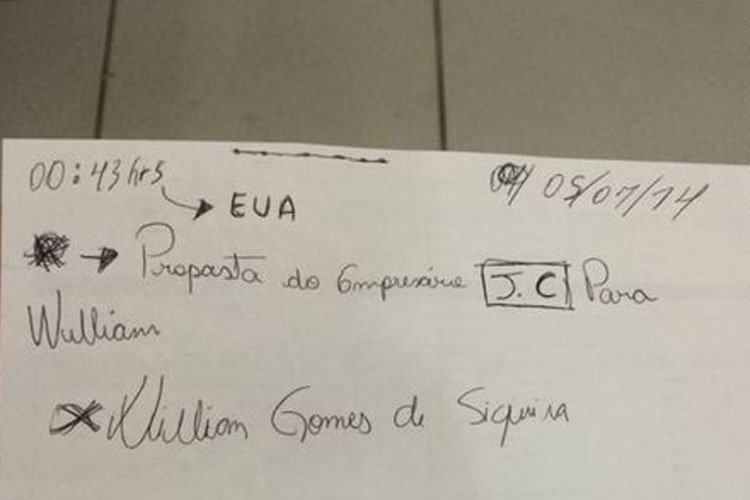 00:43 hrs 05/07/14
EUA
Proposta do Empresário J.C Para
William
William Gomes de Siqueira